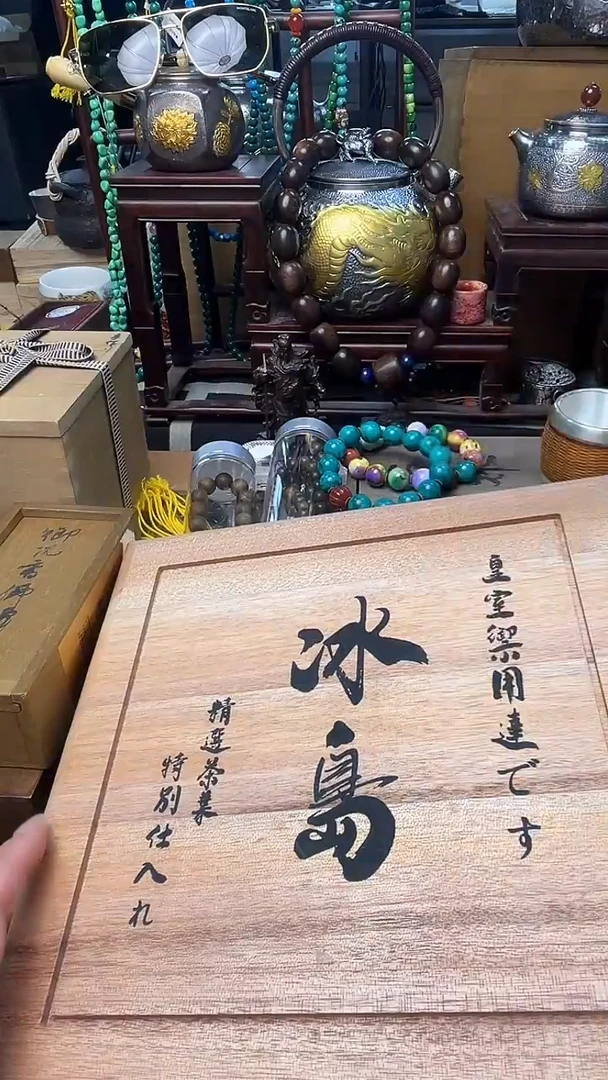 皇室禦用達です
冰島
精選茶葉
特別仕入れ